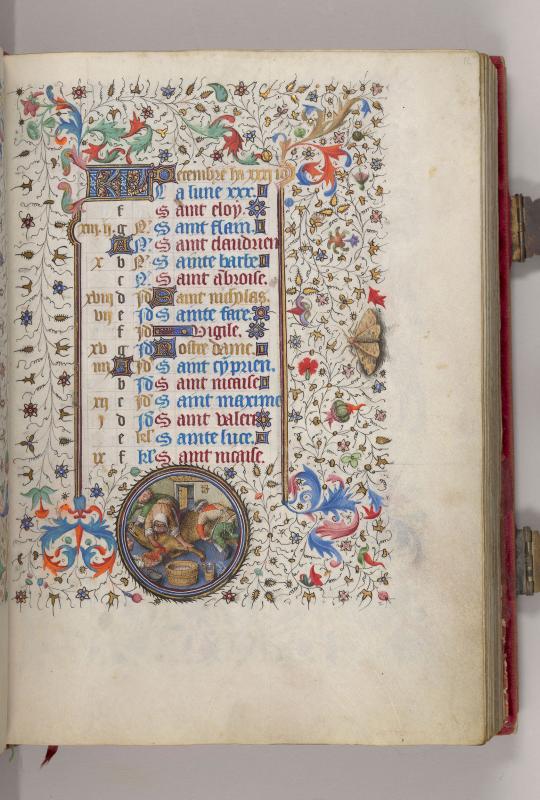 KL Decembre ha xxxi io
La lune xxx.
f Saint eloy.
xiii. ij. g N. Saint flain.
A N. Saint claudrien
x b N. Sainte barbe
c N. Saint abroise.
xviii d Jd Saint nicholas.
vii e Jd Sainte fare.
f Jd Vigile.
xv g Jd Nostre dame.
iiii A Jd Saint cyprien.
b Jd Saint nicaise
xii c Jd Saint maxime
j d Jd Saint valeri
e kl Sainte luce.
ix f kl Saint nicaise.